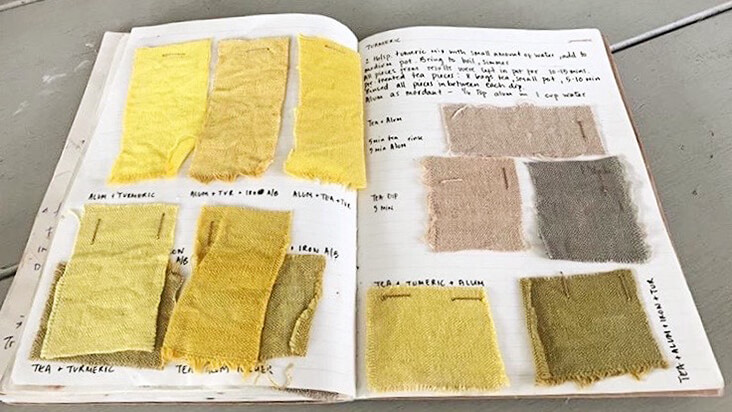 ALUM + TURMERIC
ALUM + TUR + IRON A/B
ALUM + TEA + TUR
IRON
A/B
+ IRON A/B
TEA + TURMERIC
TEA ALUM
TURMERIC
2 tbsp. turmeric mix with small amount of water, add to
medium pot. Bring to boil, simmer
All pieces from results were kept in pot for 10-15 mins.
Pre treated tea pieces: 8 bags tea, small pot, 5-10 min
Rinsed all pieces inbetween each dye
Alum as mordant - 1/2 tsp alum in 1 cup water
Tea + Alum
5 min tea rinse
5 min Alum
TEA DIP
5 MIN
TEA + TUMERIC + ALUM
TEA + ALUM + IRON + TUR